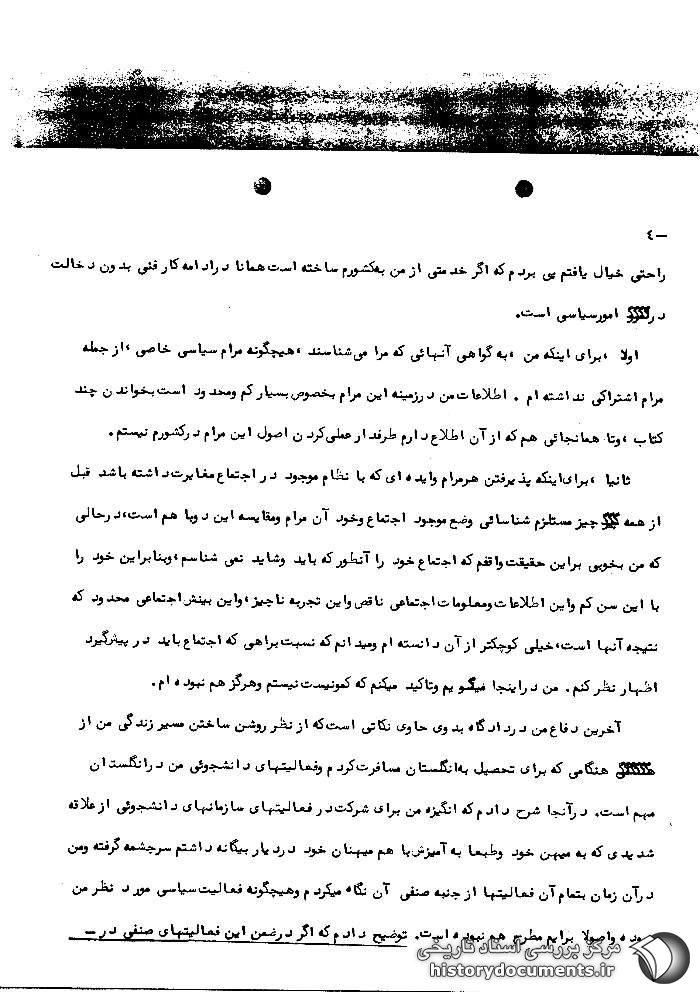 -٤
راحتی خیال یافتم پی بردم که اگر خدمتی از من به‌کشورم ساخته است همانا در ادامه کار فنی بدون دخالت
در امور سیاسی است.
اولا ،برای اینکه من ،به گواهی آنهائی که مرا می‌شناسند ،هیچگونه مرام سیاسی خاصی ،از جمله
مرام اشتراکی نداشته ام . اطلاعات من در زمینه این مرام بخصوص بسیار کم و محدود است بخواندن چند
کتاب ،وتا همانجائی هم که از آن اطلاع دارم طرفدار عملی کردن اصول این مرام در کشورم نیستم.
ثانیا ،برای‌اینکه پذیرفتن هرمرام وایده ای که با نظام موجود در اجتماع مغایرت داشته باشد قبل
از همه چیز مستلزم شناسائی وضع موجود اجتماع وخود آن مرام ومقایسه این دو با هم است،در حالی
که من بخوبی بر این حقیقت واقفم که اجتماع خود را آنطور که باید وشاید نمی شناسم،وبنابراین خود را
با این سن کم واین اطلاعات ومعلومات اجتماعی ناقص واین تجربه ناچیز،واین بینش اجتماعی محدود که
نتیجه آنها است،خیلی کوچکتر از آن دانسته ام ومیدانم که نسبت براهی که اجتماع باید در پیش‌گیرد
اظهار نظر کنم. من در اینجا میگویم وتاکید میکنم که کمونیست نیستم وهرگز هم نبوده ام.
آخرین دفاع من در دادگاه بدوی حاوی نکاتی است که از نظر روشن ساختن مسیر زندگی من از
هنگامی که برای تحصیل به‌انگلستان مسافرت کردم وفعالیتهای دانشجوئی من در انگلستان
مهم است. در آنجا شرح دادم که انگیزه من برای شرکت در فعالیتهای سازمانهای دانشجوئی از علاقه
شدیدی که به میهن خود وطبعا به آمیزش با هم میهنان خود در دیار بیگانه داشتم سرچشمه گرفته ومن
در آن زمان بتمام آن فعالیتها از جنبه صنفی آن نگاه میکردم وهیچگونه فعالیت سیاسی مورد نظر من
نبوده واصولا برایم مطرح هم نبوده است. توضیح دادم که اگر در ضمن این فعالیتهای صنفی در –
مرکز بررسی اسناد تاریخی
historydocuments.ir